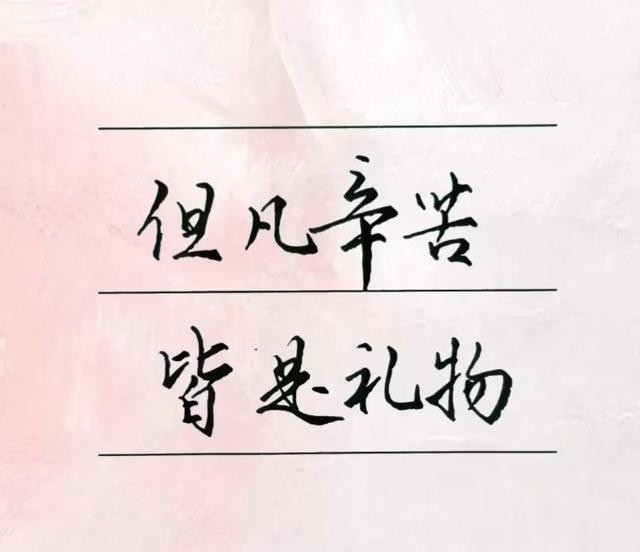 但凡辛苦
皆是礼物